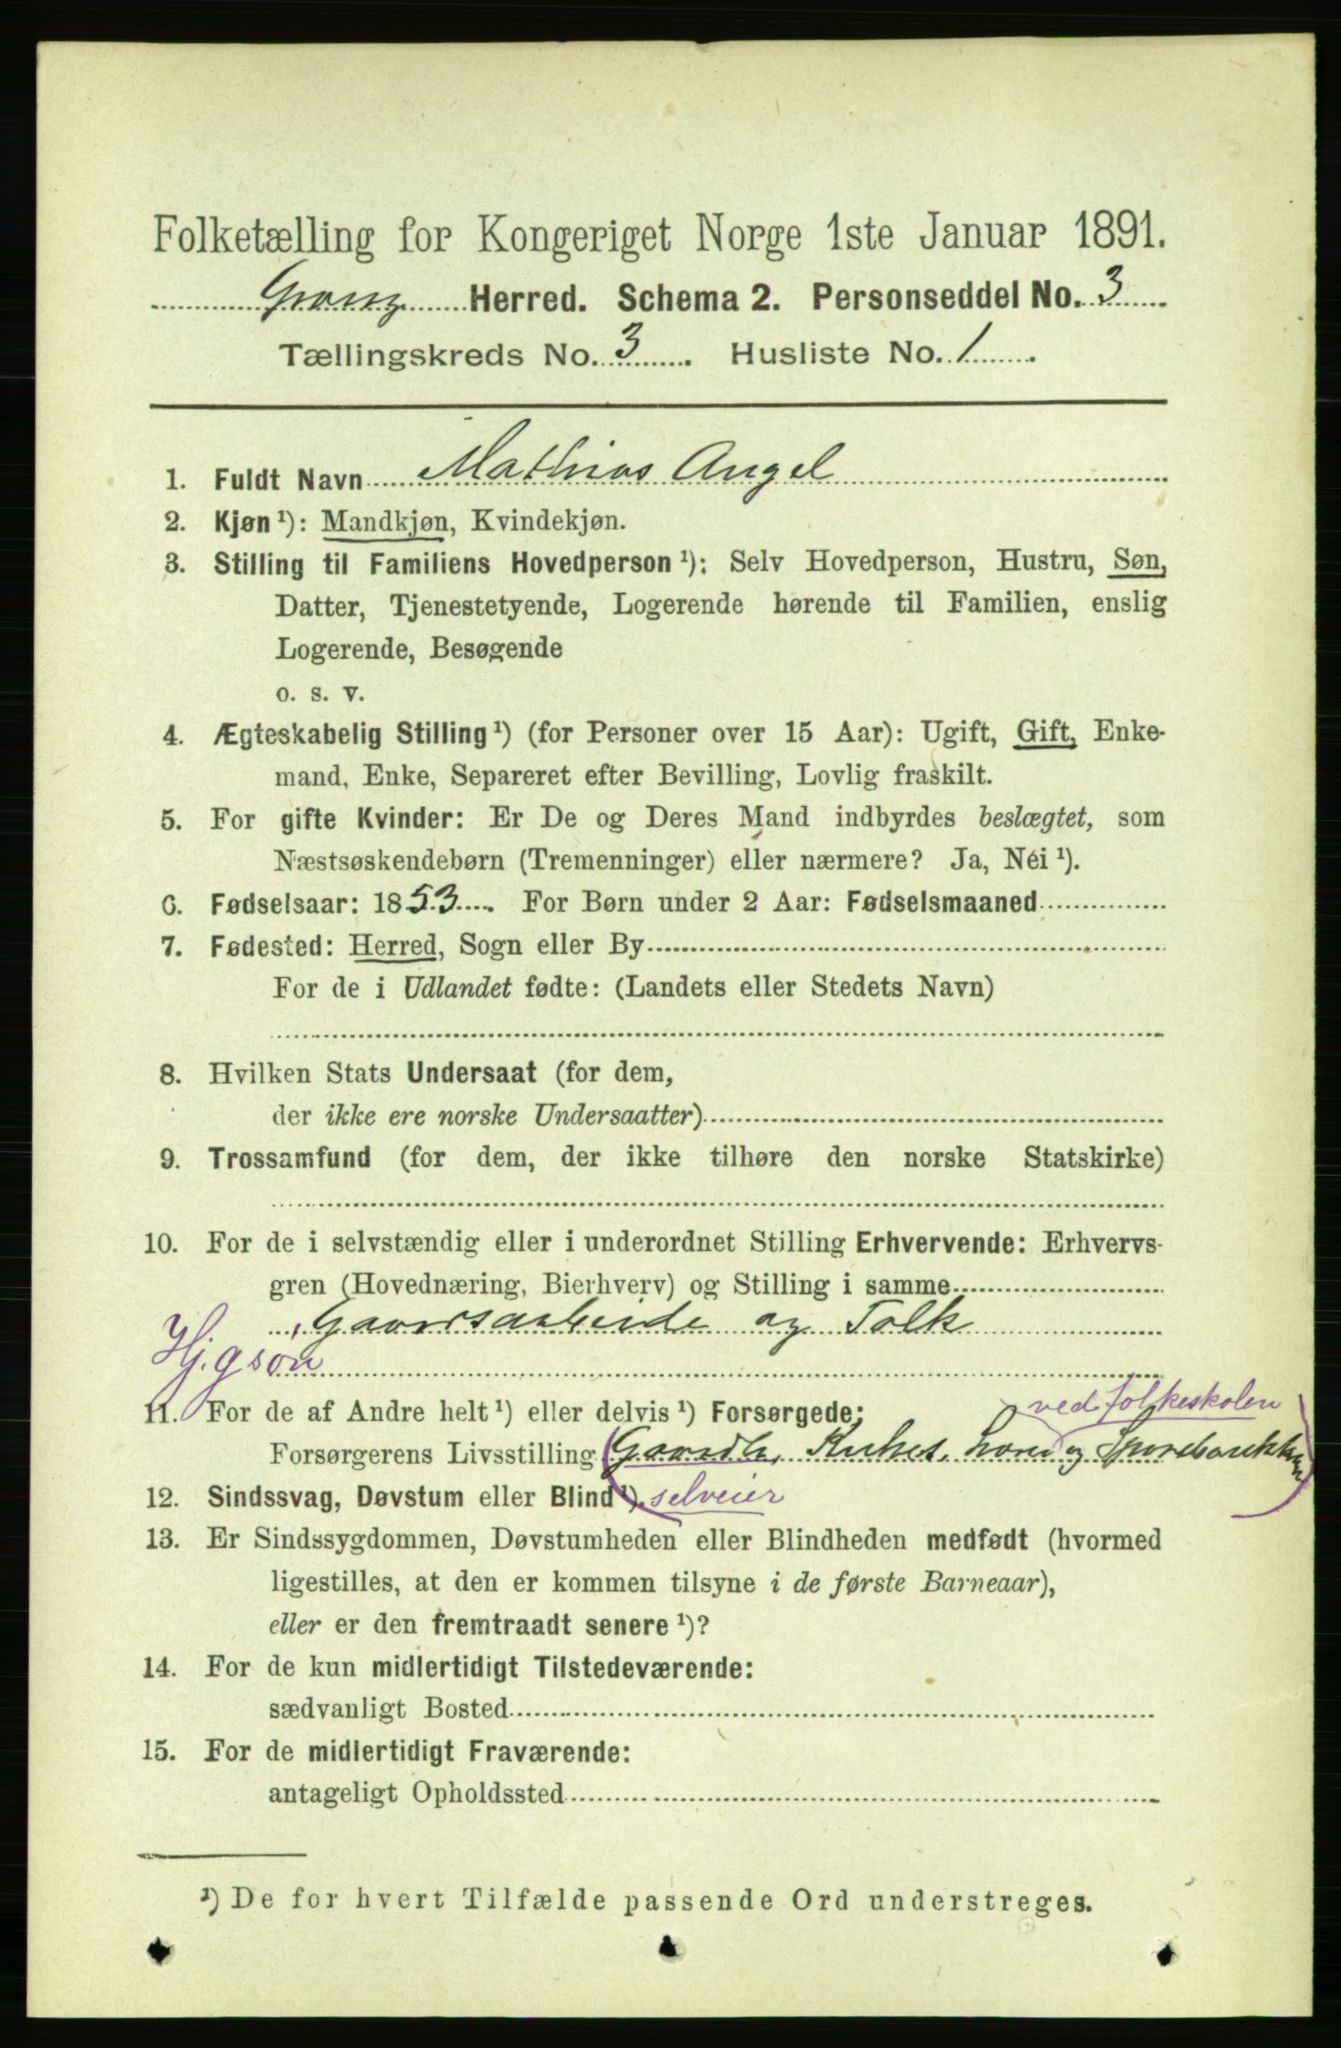 Folketælling for Kongeriget Norge 1ste Januar 1891.
Grong Herred. Schema 2. Personseddel No. 3
Tællingskreds No. 3. Husliste No. 1.
1. Fuldt Navn Mathias Angel
2. Kjøn ¹): Mandkjøn, Kvindekjøn.
3. Stilling til Familiens Hovedperson ¹): Selv Hovedperson, Hustru, Søn,
Datter, Tjenestetyende, Logerende hørende til Familien, enslig
Logerende, Besøgende
o. s. v.
4. Ægteskabelig Stilling ¹) (for Personer over 15 Aar): Ugift, Gift, Enke-
mand, Enke, Separeret efter Bevilling, Lovlig fraskilt.
5. For gifte Kvinder: Er De og Deres Mand indbyrdes beslægtet, som
Næstsøskendebørn (Tremenninger) eller nærmere? Ja, Nei ¹).
6. Fødselsaar: 1853. For Børn under 2 Aar: Fødselsmaaned
7. Fødested: Herred, Sogn eller By
For de i Udlandet fødte: (Landets eller Stedets Navn)
8. Hvilken Stats Undersaat (for dem,
der ikke ere norske Undersaatter)
9. Trossamfund (for dem, der ikke tilhøre den norske Statskirke)
10. For de i selvstændig eller i underordnet Stilling Erhvervende: Erhvervs-
gren (Hovednæring, Bierhverv) og Stilling i samme
Gaardsarbeide og Tolk
Hj. g søn
11. For de af Andre helt ¹) eller delvis ¹) Forsørgede:
ved folkeskolen
Forsørgerens Livsstilling Gaardb, og
12. Sindssvag, Døvstum eller Blind ¹). selveier
13. Er Sindssygdommen, Døvstumheden eller Blindheden medfødt (hvormed
ligestilles, at den er kommen tilsyne i de første Barneaar),
eller er den fremtraadt senere ¹)?
14. For de kun midlertidigt Tilstedeværende:
sædvanligt Bosted
15. For de midlertidigt Fraværende:
antageligt Opholdssted
¹) De for hvert Tilfælde passende Ord understreges.